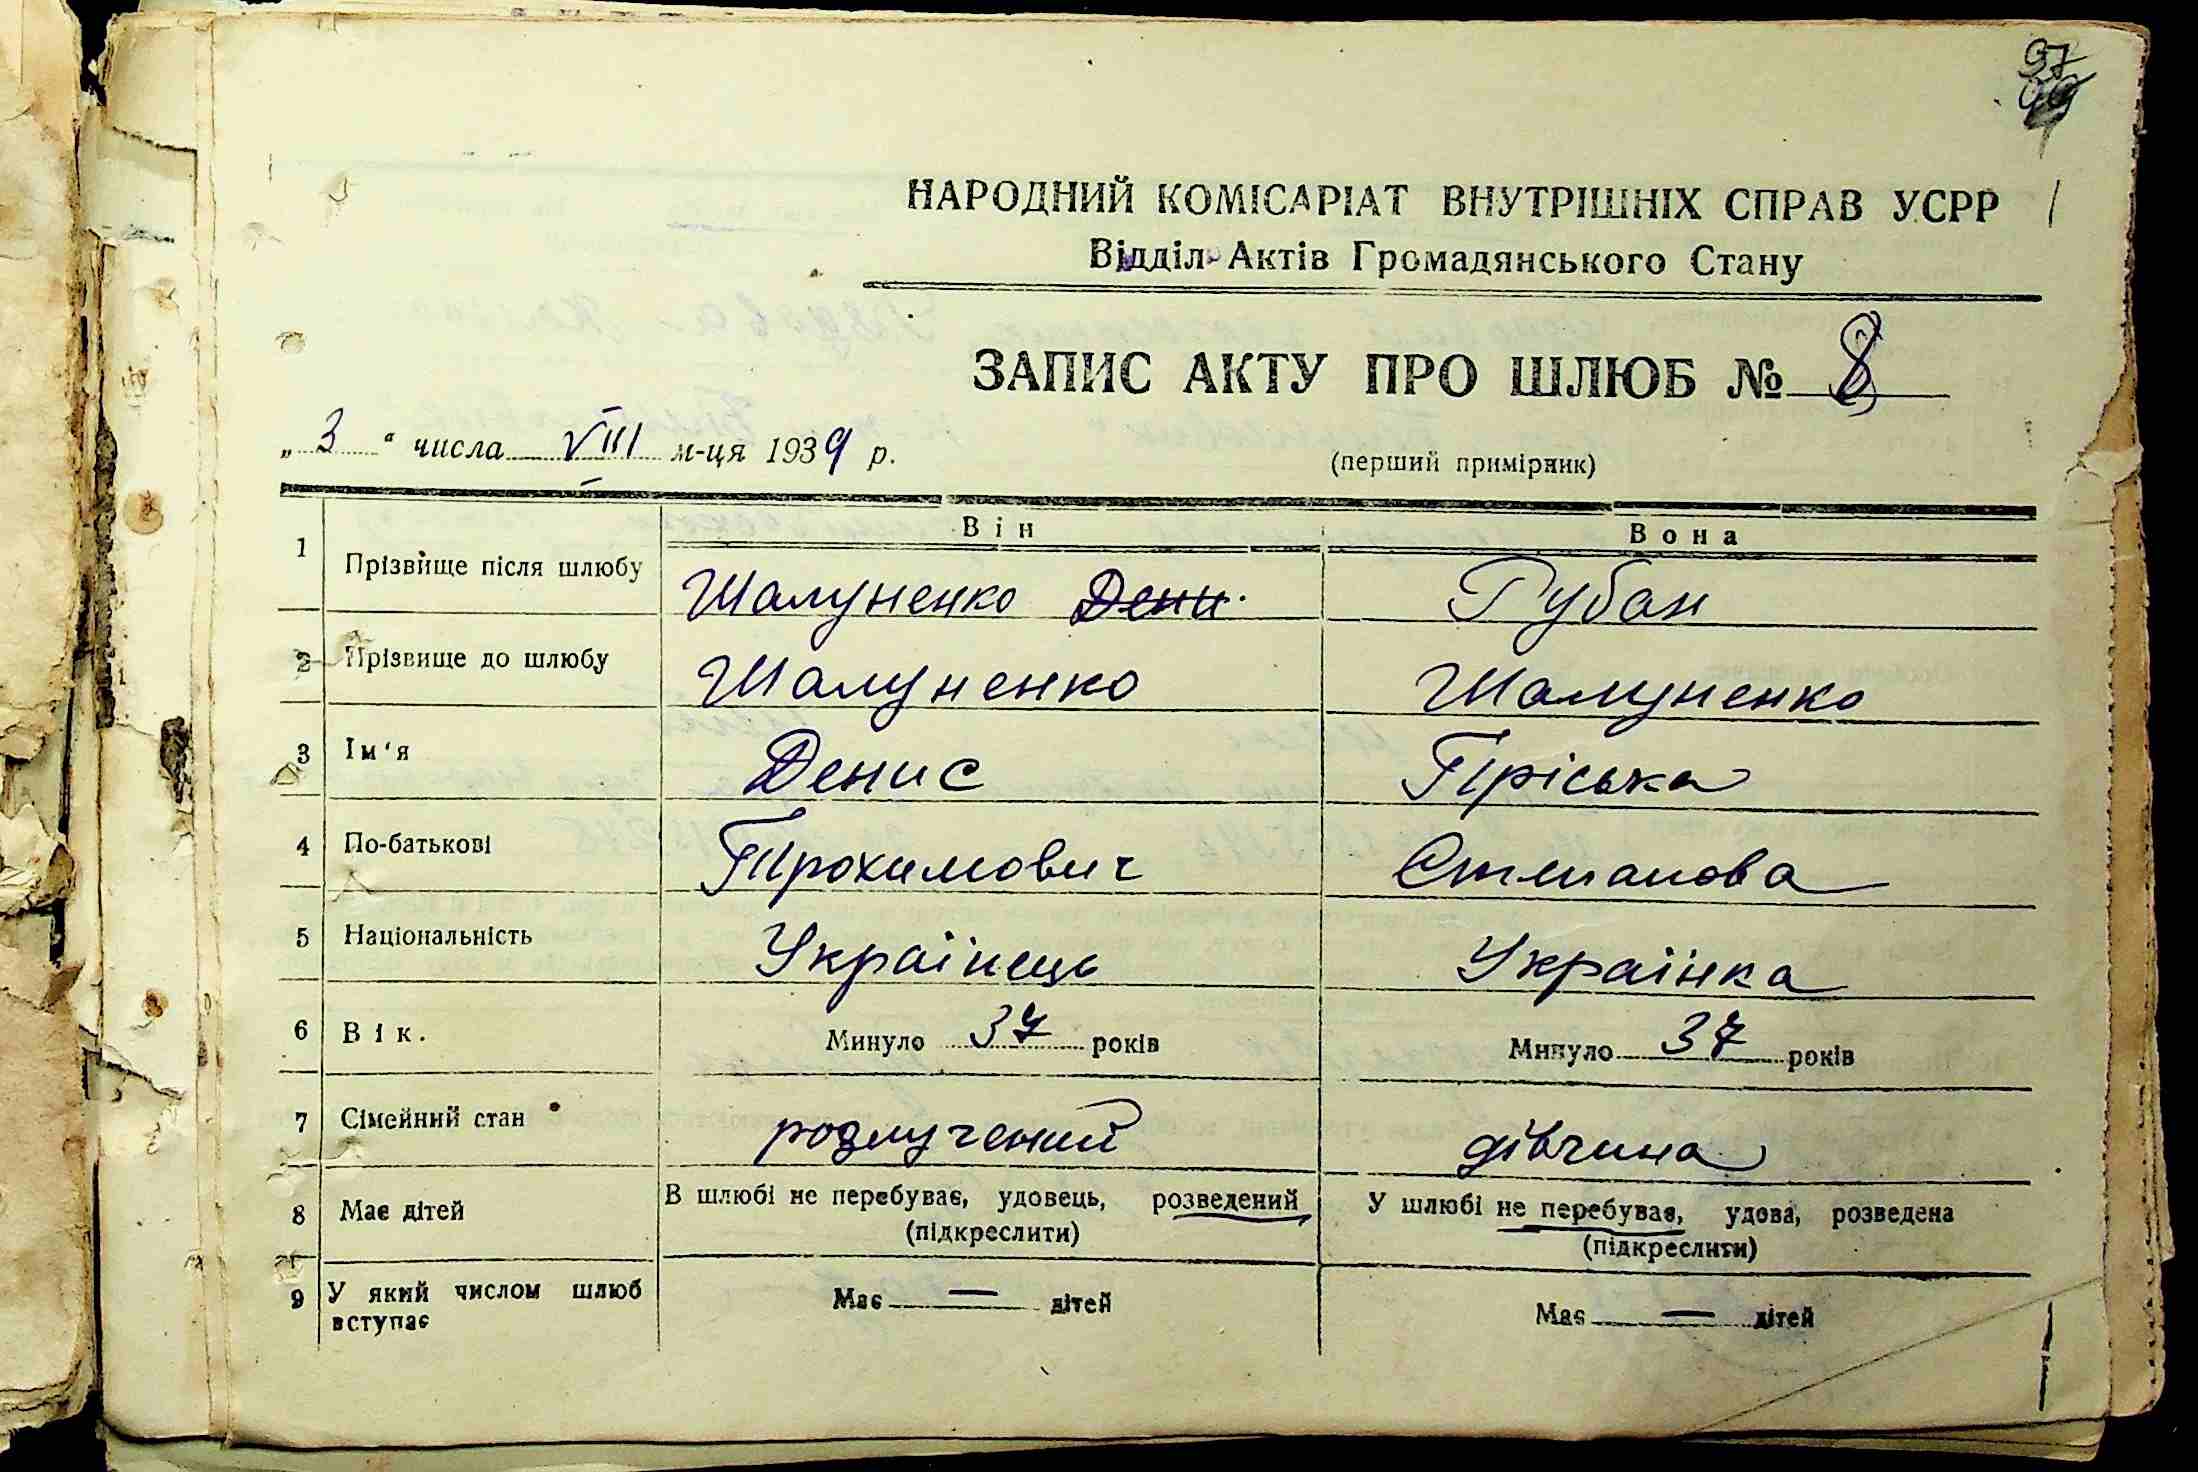 97
НАРОДНИЙ КОМІСАРІАТ ВНУТРІШНІХ СПРАВ УСРР
Відділ Актів Громадянського Стану
ЗАПИС АКТУ ПРО ШЛЮБ № 8
„ 3 “ числа VIII м-ця 1939 р.
(перший примірник)
Він Вона
1 Прізвище після шлюбу Шалуненко Дени Рубан
2 Прізвище до шлюбу Шалуненко Шалуненко
3 Ім'я Денис Пріська
4 По-батькові Трохимович Степанова
5 Національність Українець Українка
6 Вік. Минуло 37 років Минуло 37 років
7 Сімейний стан розлучений дівчина
8 Має дітей В шлюбі не перебуває, удовець, розведений У шлюбі не перебуває, удова, розведена
(підкреслити) (підкреслити)
9 У який числом шлюб вступає Має — дітей Має — дітей